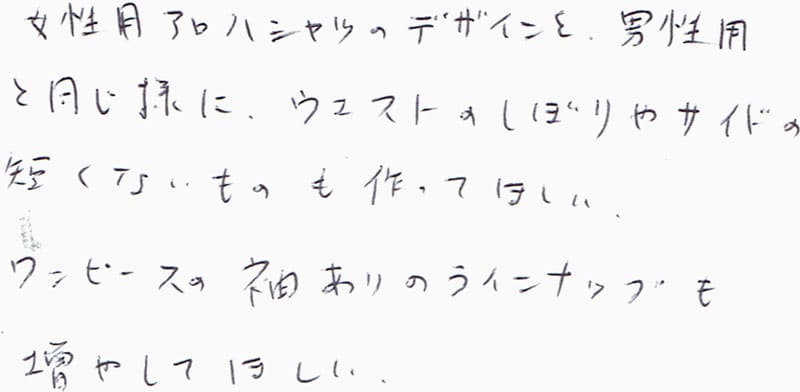 女性用アロハシャツのデザインを、男性用
と同じ様に、ウエストのしぼりやサイドの
短くないものも作ってほしい。
ワンピースの袖ありのラインナップも
増やしてほしい。